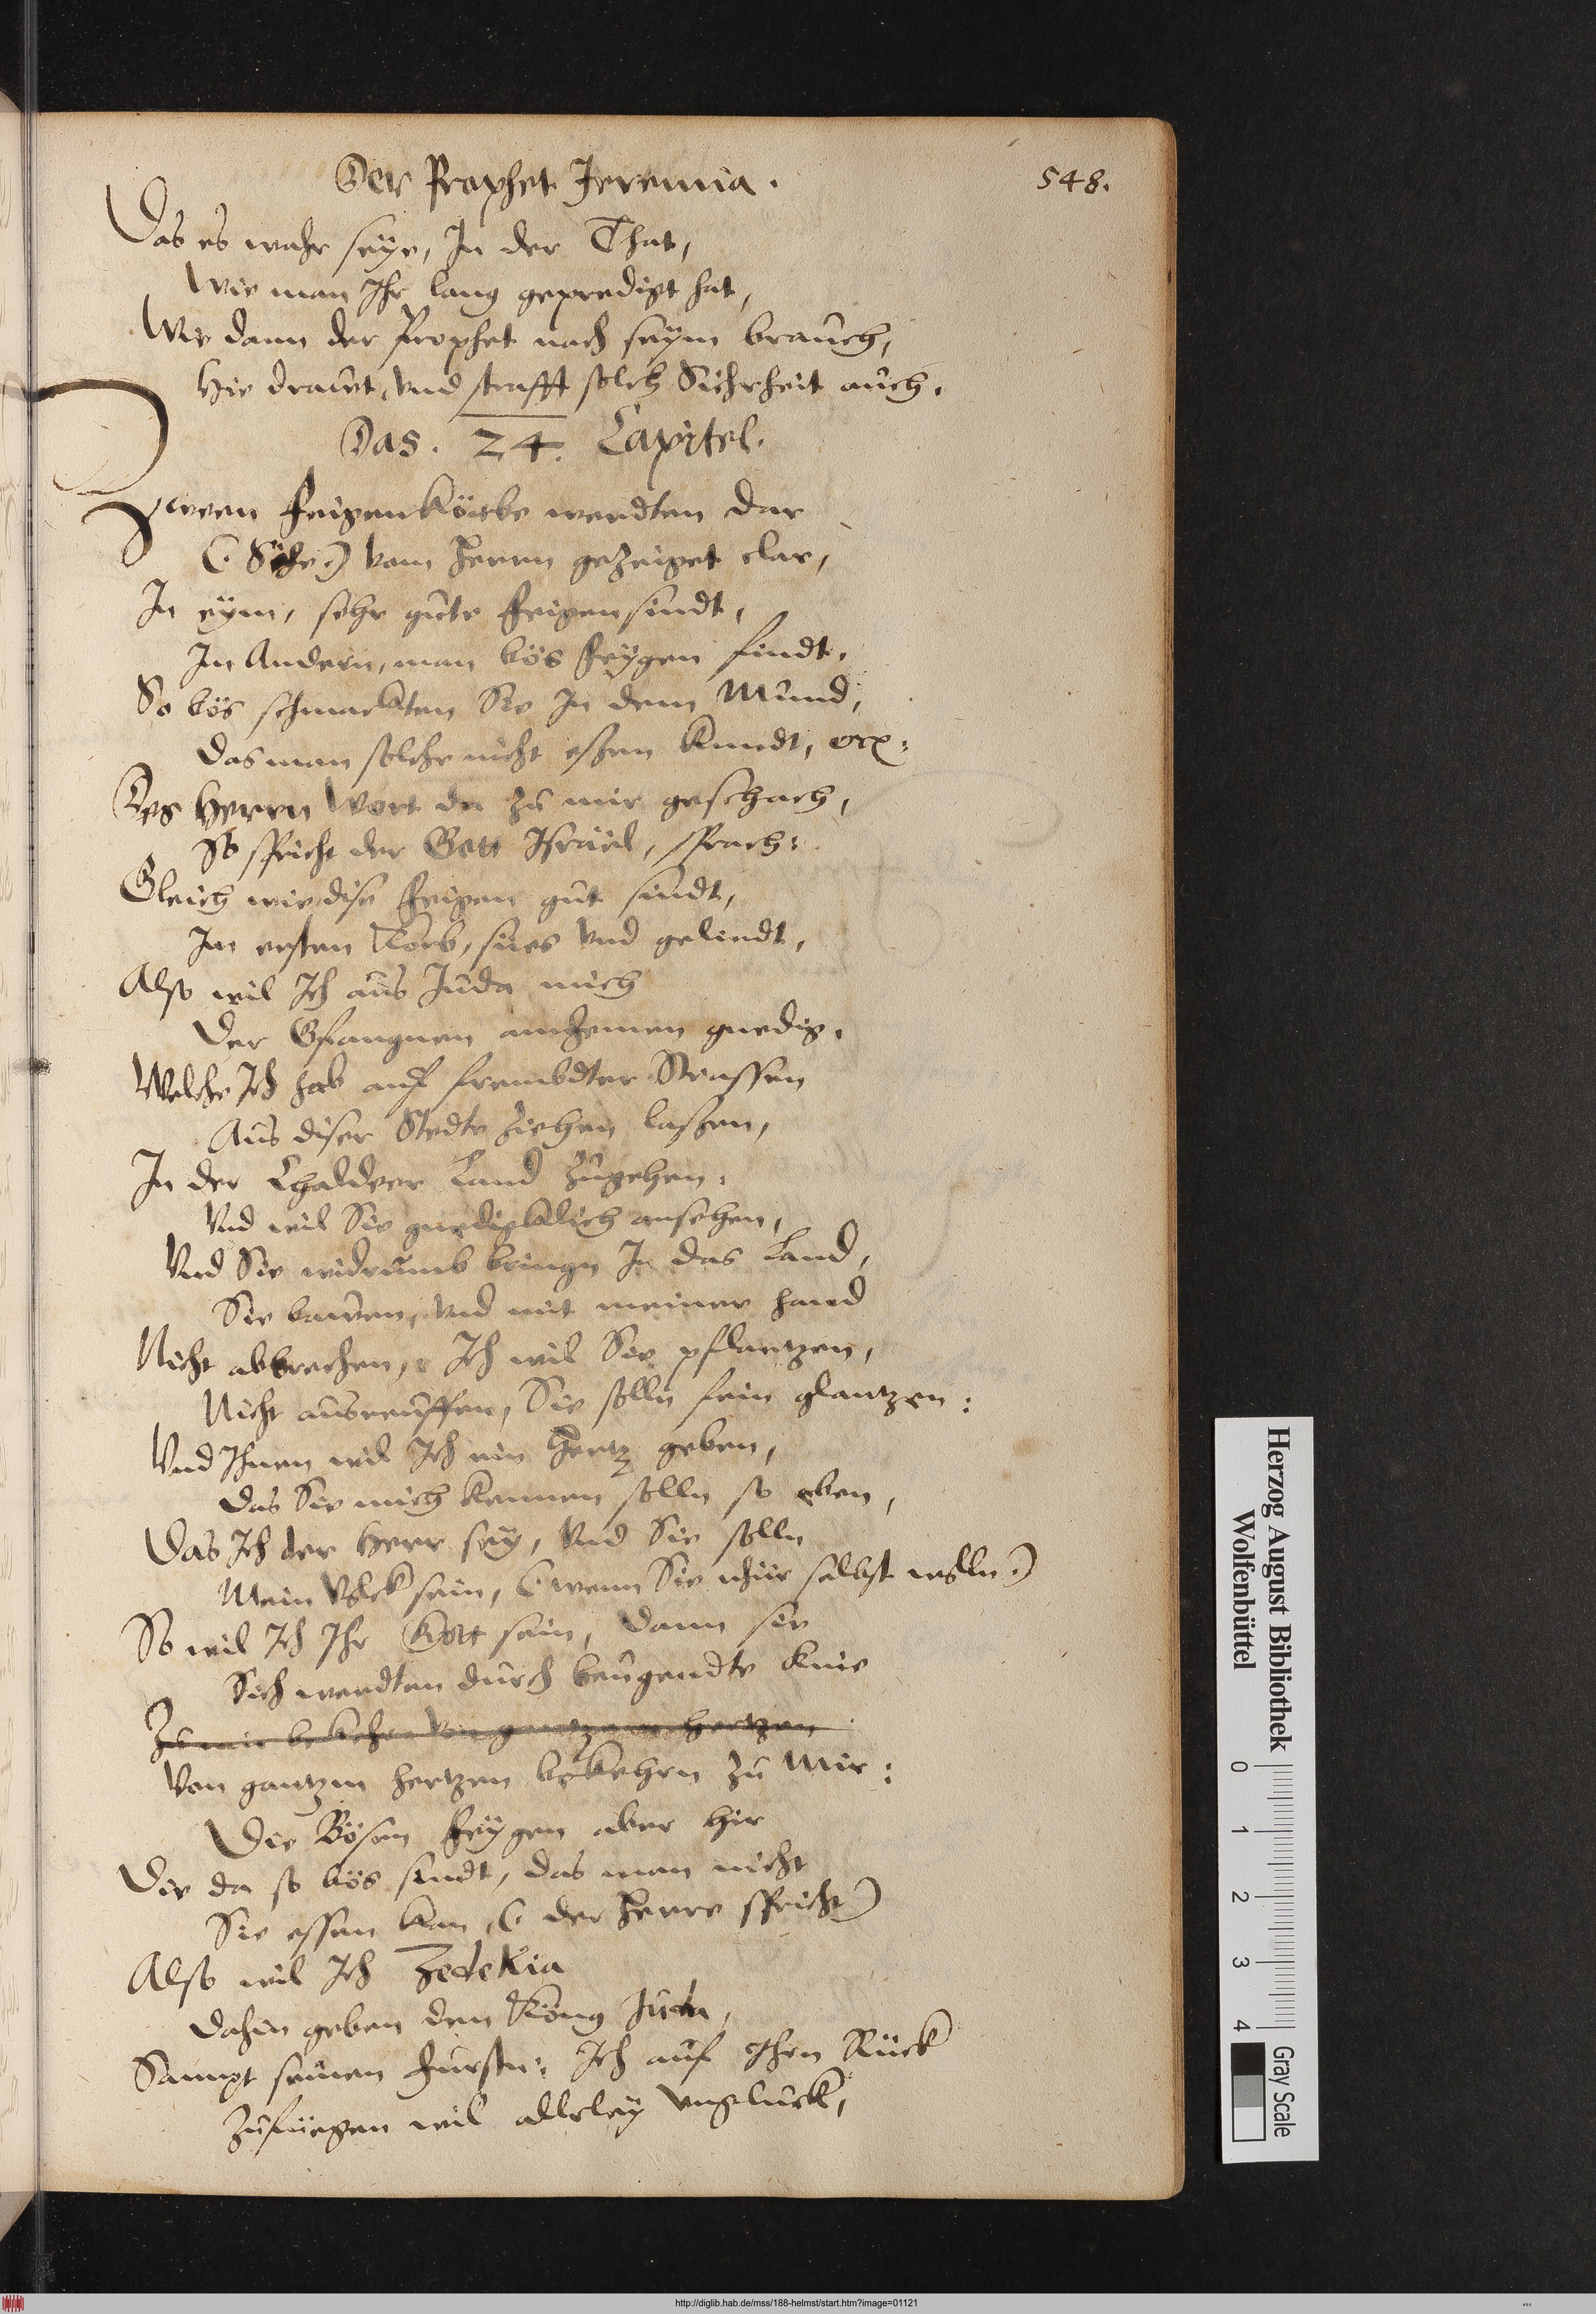 Der Prophet Jeremia.
548.
Das es wahr seÿe, In der That,
Wie man Ihr lang geprediget hat,
Wie dann der Prophet nach seÿm brauch,
Hie drauet, vnd strafft solch Sicherheit auch.
Das. 24. Capitel.
Zween Feigenkörbe werdten dar
(: Sihe :) vom Herrn gezeiget clar,
In eÿm, sehr gute Feigen sindt,
In Andern, man bös Feÿgen findt.
So bös schmackten Sie In dem Mund,
Das man solche nicht eßen kundt, etc:
Des Herrn Wort da zu mir geschach,
So spricht der Gott Israël, sprach:
Gleich wie dise Feigen gut sindt,
Im ersten Korb, sües vnd gelindt,
Also wil Ich aus Juda mich
Der Gfangnen annemen gnedig.
Welche Ich hab auf frembdter Strassen
Aus diser Stedte ziehen laßen,
In der Chaldeer Land zugehen:
Vnd wil Sie gnedicklich ansehen,
Vnd Sie widrumb bringn In das Land,
Sie bawen, vnd mit meiner hand
Nicht abbrechen, Ich wil Sie pflantzen,
Nicht ausreuffen, Sie solln fein glantzen:
Vnd Ihnen wil Ich ein Hertz geben,
Das Sie mich kennen solln so eben,
Das Ich der Herr seÿ, Vnd Sie solln
Mein Volck sein, (: wenn Sie nhür selbst wolln :)
So wil Ich Ihr Gott sein, dann sie
Sich werdten durch beugendte knie
Zu mir bekehrn von gantzem hertzen
Von gantzm hertzen bekehrn zu Mir:
Die Bösen Feÿgen aber hir
Die da so bös sindt, das man nicht
Sie essen kan, (: der Herre spricht)
Also wil Ich Zedekia
Dahin geben den König Juda,
Sampt seinen Fürstn: Ich auf Ihrn Rück
Zufuegen wil allerleÿ vngluck,
Herzog August Bibliothek
Wolfenbüttel
0 1 2 3 4
Gray Scale
http://diglib.hab.de/mss/188-helmst/start.htm?image=01121